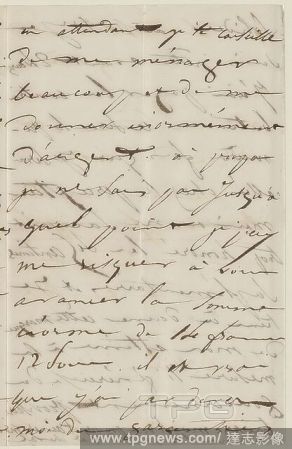 en attendant je te conseille
de me ménager
beaucoup et de me
donner énormément
d'argent. à propos
je ne sais pas jusqu'à
quel point je puis
me risquer à vous
avancer la somme
énorme de 16 francs
12 sous. il est vrai
que j'ai par devers
moi
TPG
www.tpgnews.com 達志影像